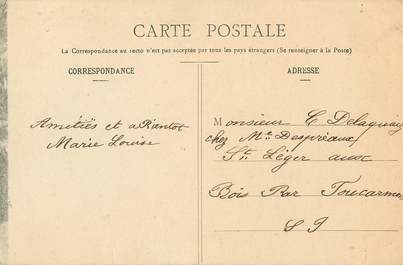 CARTE POSTALE
La Correspondance au recto n'est pas acceptée par tous les pays étrangers (Se renseigner à la Poste)
CORRESPONDANCE
ADRESSE
Amitiés et a Bientot
Marie Louise
Monsieur
chez Mr Despréaux
St Léger aux
Bois Par
S I